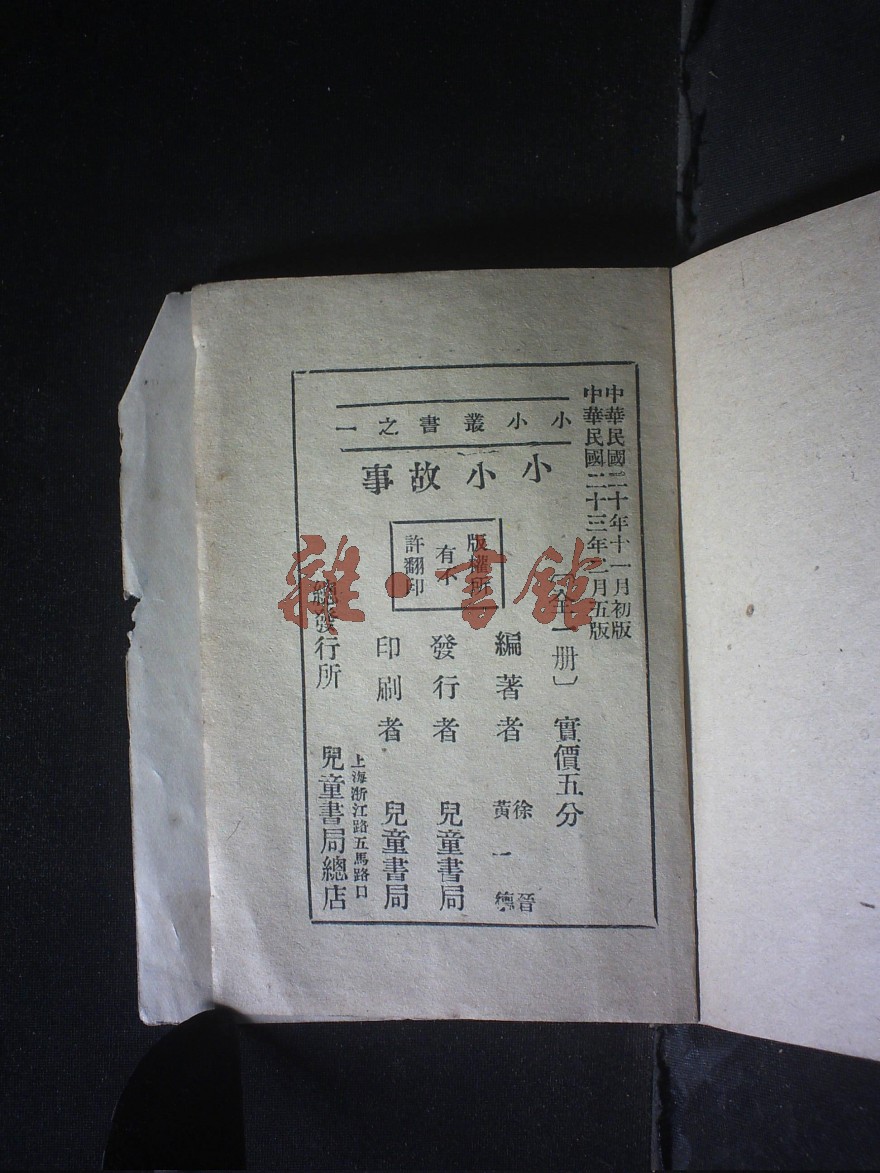 中華民國二十年十一月初版
中華民國二十三年二月五版
小小叢書之一
小小故事
〔全一册〕 實價五分
版權所
有不
許翻印
編著者 徐晉 黄一德
發行者 兒童書局
印刷者 兒童書局
上海浙江路五馬路口
總發行所 兒童書局總店
雜·書館